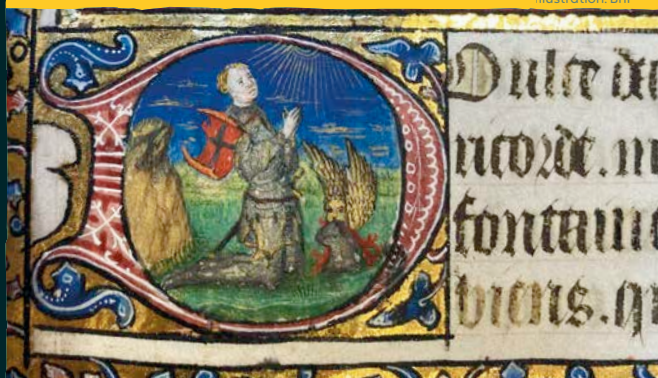 Illustration: BnF
Oulce da
ricorde. m
fontaine
biens. q